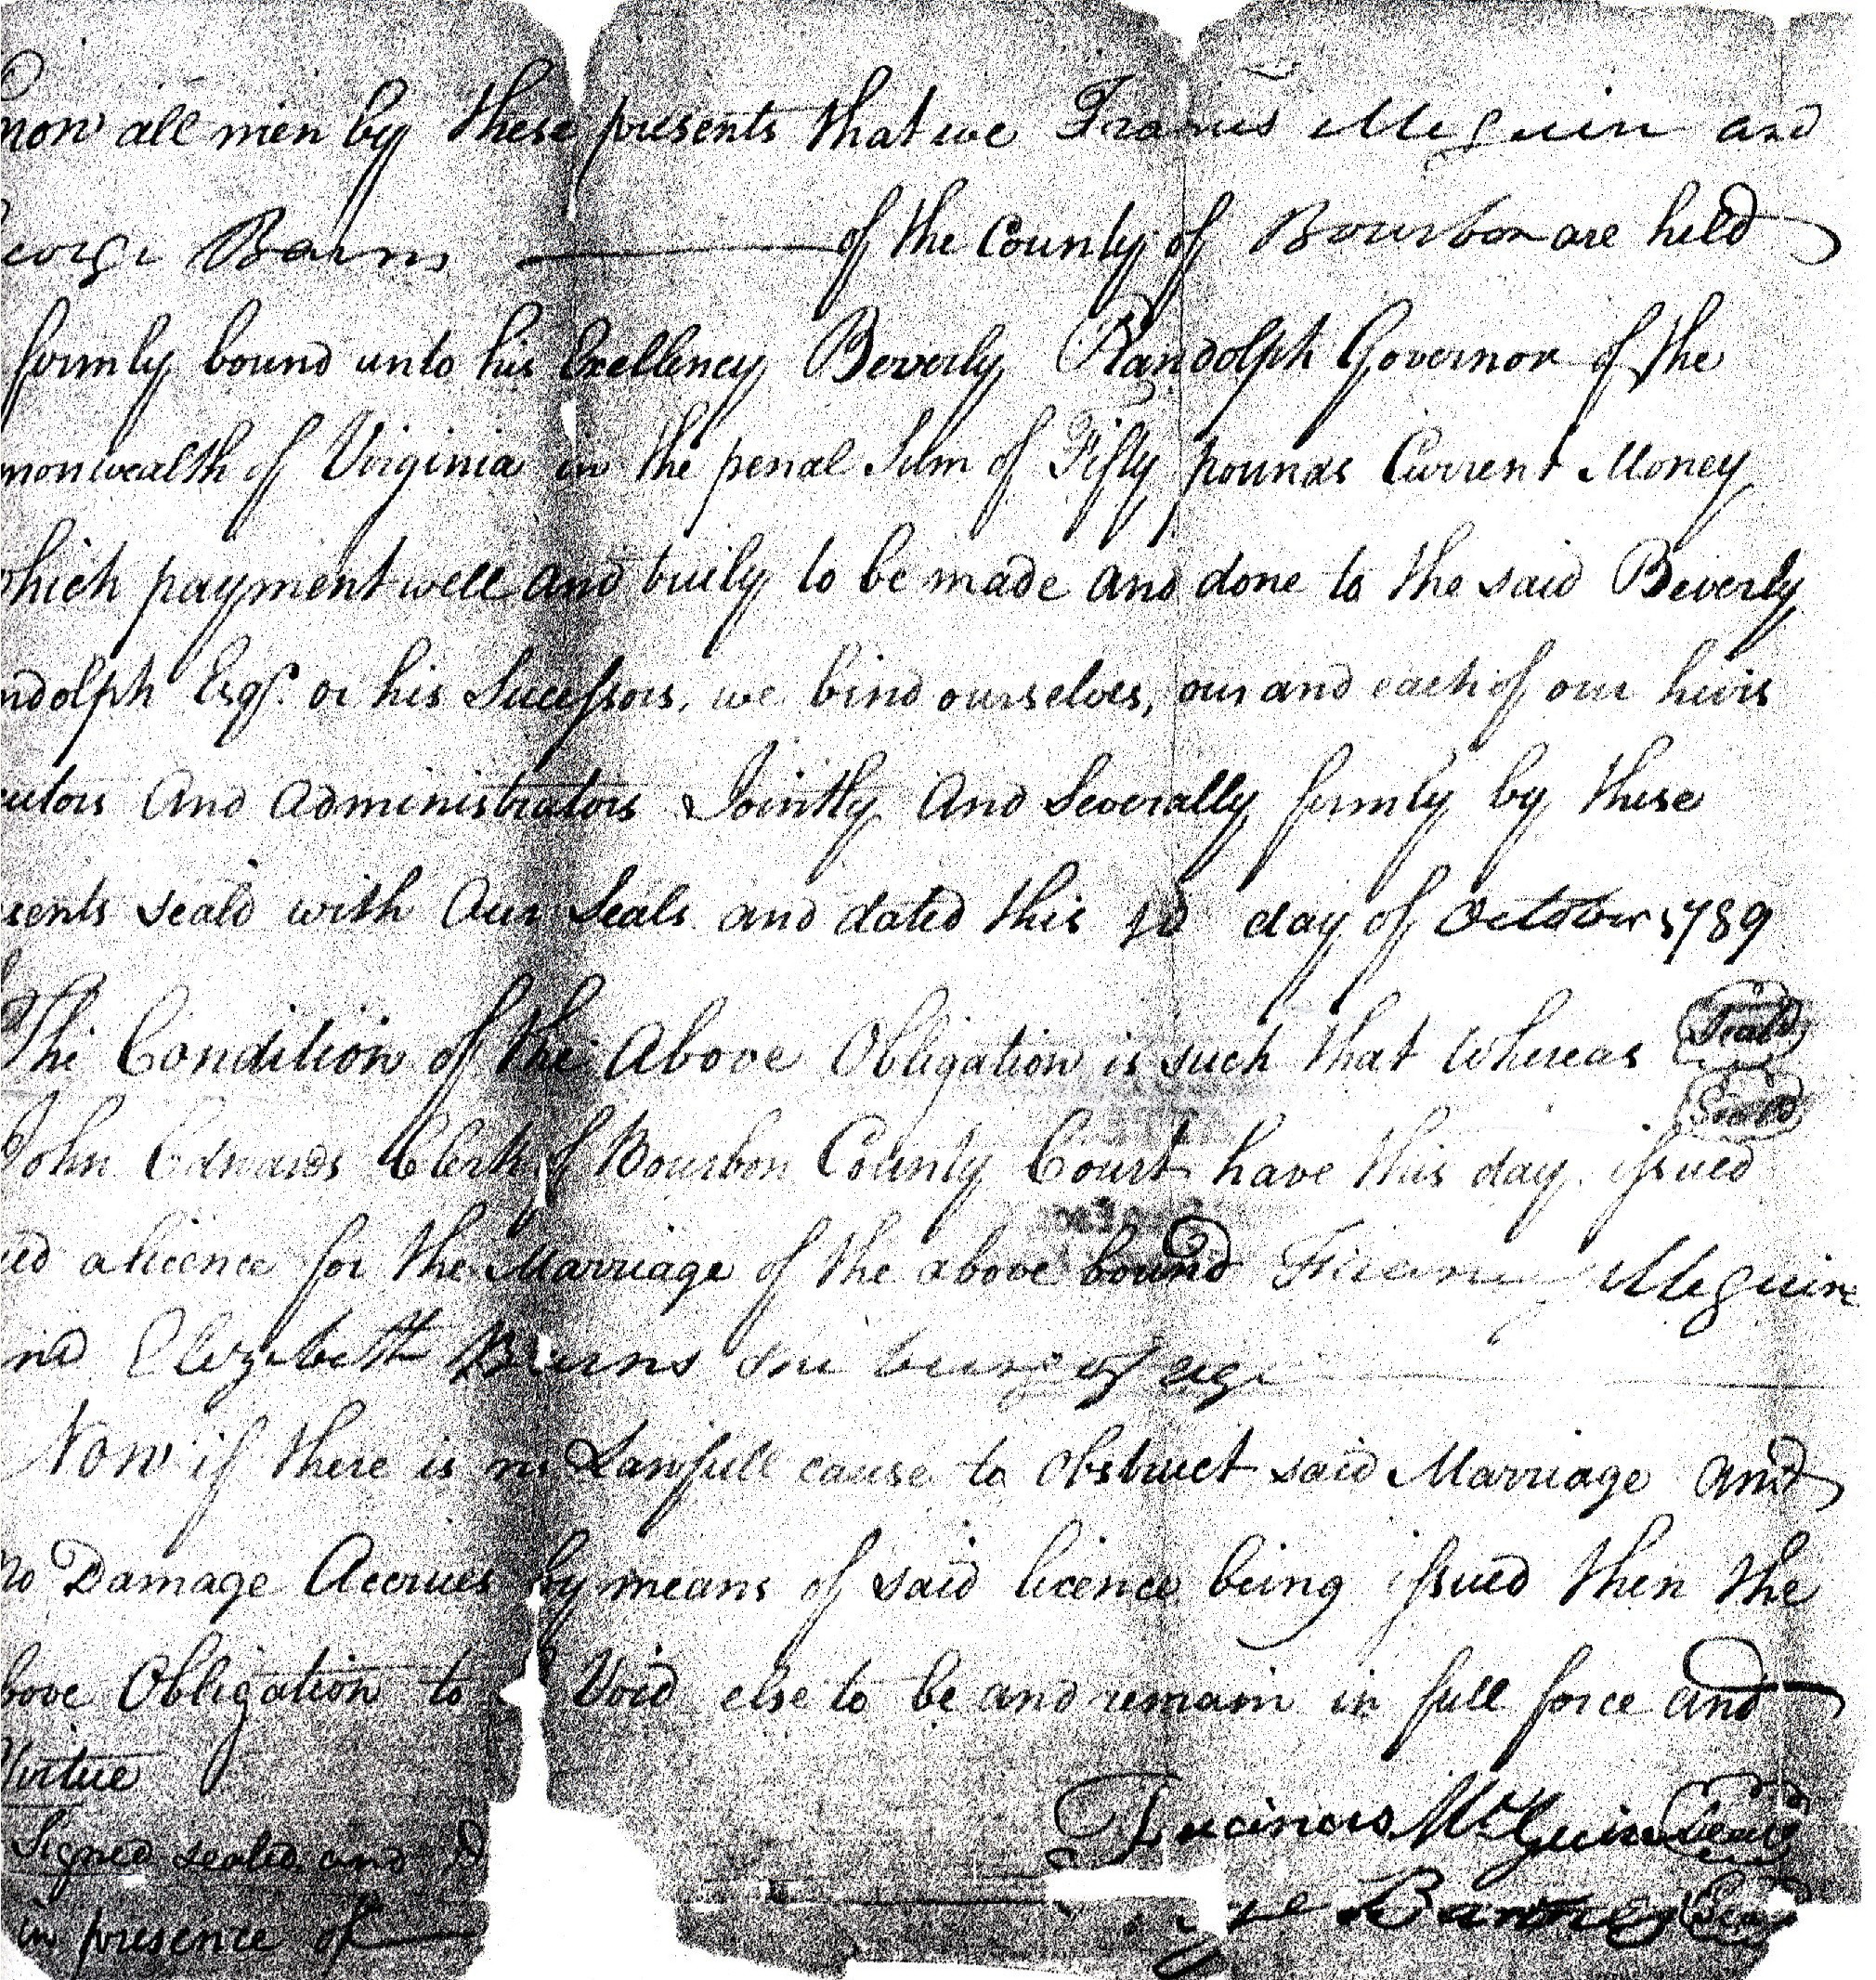 now all men by these presents that we Francis Meguire and
eorge Barns of the County of Bourbon are held
firmly bound unto his Excellency Beverly Randolph Governor of the
monwealth of Virginia in the penal Sum of Fifty pounds Current Money
which payment well and truly to be made and done to the said Beverly
ndolph Esqr. or his Sucessors, we bind ourselves, our and each of our heirs
cutors and administrators Jointly and Severally firmly by these
sents seald with Our Seals and dated this day of October 1789
The Condition of the Above Obligation is such that Whereas Seald
Seald
John Edwards Clerk of Bourbon County Court have this day issued
ued a licence for the Marriage of the above bound Francis Meguire
and Elizabeth Barns she being of age
Now if there is no Lawfull cause to obstruct said Marriage and
No Damage Accrues by means of said licence being issued then the
bove Obligation to Void else to be and remain in full force and
Virtue
Francis McGuire Seal
Signed sealed and D
ge Barnes Seal
in presence of